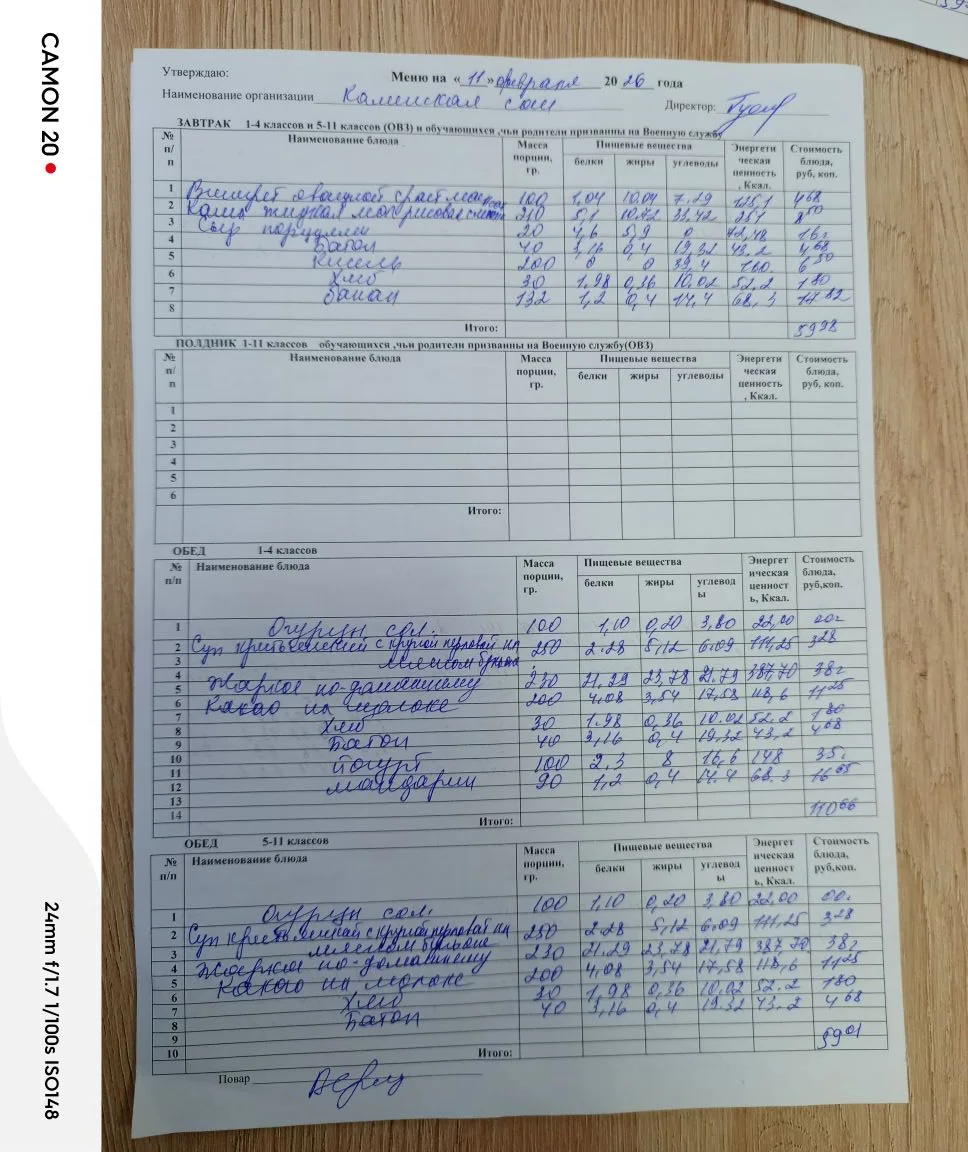 CAMON 20
24mm f/1.7 1/100s ISO148
Утверждаю:
Меню на « 11 » февраля 20 26 года
Наименование организации Каменская сош Директор:
ЗАВТРАК 1-4 классов и 5-11 классов (ОВЗ) и обучающихся ,чьи родители призванны на Военную службу
№ п/п Наименование блюда Масса порции, гр. Пищевые вещества Энергетическая ценность, Ккал. Стоимость блюда, руб, коп.
белки жиры углеводы
1 Винегрет овощной с раст маслом 100 1,04 10,04 7,29 125,1 4 68
2 Каша жидкая мол рисовая с маслом 210 5,1 10,72 33,42 251 8 50
3 Сыр порциями 20 4,6 5,9 0 72,48 16 г
4 Батон 40 3,16 0,4 19,32 43,2 4 68
5 Кисель 200 0 0 39,4 160. 6 50
6 Хлеб 30 1,98 0,36 10,02 52,2 1 80
7 Банан 132 1,2 0,4 14,4 68,3 17 82
8
Итого: 59 98
ПОЛДНИК 1-11 классов обучающихся ,чьи родители призванны на Военную службу(ОВЗ)
№ п/п Наименование блюда Масса порции, гр. Пищевые вещества Энергетическая ценность, Ккал. Стоимость блюда, руб, коп.
белки жиры углеводы
1
2
3
4
5
6
Итого:
ОБЕД 1-4 классов
№ п/п Наименование блюда Масса порции, гр. Пищевые вещества Энергетическая ценность, Ккал. Стоимость блюда, руб,коп.
белки жиры углеводы
1 Огурец сол. 100 1,10 0,20 3,80 22,00 00г
2 Суп крестьянский с крупой перловой на 250 2.28 5,12 6.09 111,25 3 28
3 мясном бульоне
4 Жаркое по-домашнему 230 21,29 23,78 21.79 387,70 38 г
5 Какао на молоке 200 4,08 3,54 17,58 118,6 11 25
6
7 Хлеб 30 1.98 0,36 10.02 52.2 1 80
8 Батон 40 3,16 0,4 19.32 43,2 4 68
9
10 Йогурт 100 2,3 8 16,6 148 35 г
11 Мандарин 90 1,2 0,4 14.4 68,3 16 65
12
13
14 110 66
Итого:
ОБЕД 5-11 классов
№ п/п Наименование блюда Масса порции, гр. Пищевые вещества Энергетическая ценность, Ккал. Стоимость блюда, руб,коп.
белки жиры углеводы
1 Огурец сол. 100 1,10 0,20 3,80 22,00 00.
2 Суп крестьянский с крупой перловой на 250 2.28 5,12 6.09 111,25 3 28
мясном бульоне
3 Жаркое по-домашнему 230 21,29 23,78 21,79 387,70 38 г
4 Какао на молоке 200 4,08 3,54 17,58 118,6 11 25
5
6 Хлеб 30 1,98 0,36 10,02 52.2 1 80
7 Батон 40 3,16 0,4 19.32 43,2 4 68
8
9
10 59 01
Итого:
Повар